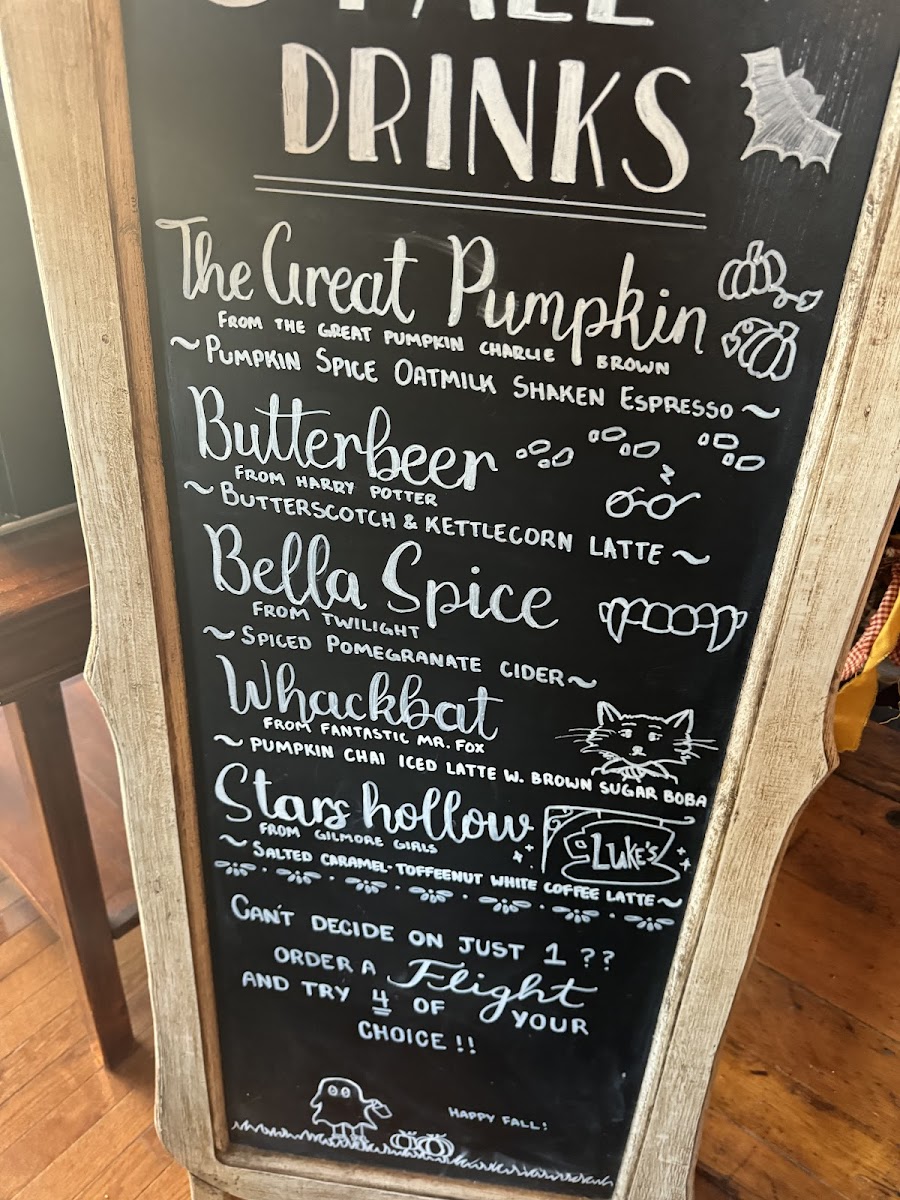 FALL
DRINKS
The Great Pumpkin
FROM THE GREAT PUMPKIN CHARLIE BROWN
~PUMPKIN SPICE OATMILK SHAKEN ESPRESSO~
Butterbeer
FROM HARRY POTTER
~BUTTERSCOTCH & KETTLECORN LATTE~
Bella Spice
FROM TWILIGHT
~SPICED POMEGRANATE CIDER~
Whackbat
FROM FANTASTIC MR. FOX
~PUMPKIN CHAI ICED LATTE W. BROWN SUGAR BOBA
Stars hollow
FROM GILMORE GIRLS
LUKE'S
~SALTED CARAMEL-TOFFEENUT WHITE COFFEE LATTE~
CAN'T DECIDE ON JUST 1 ??
ORDER A Flight
AND TRY 4 OF YOUR
CHOICE!!
HAPPY FALL!